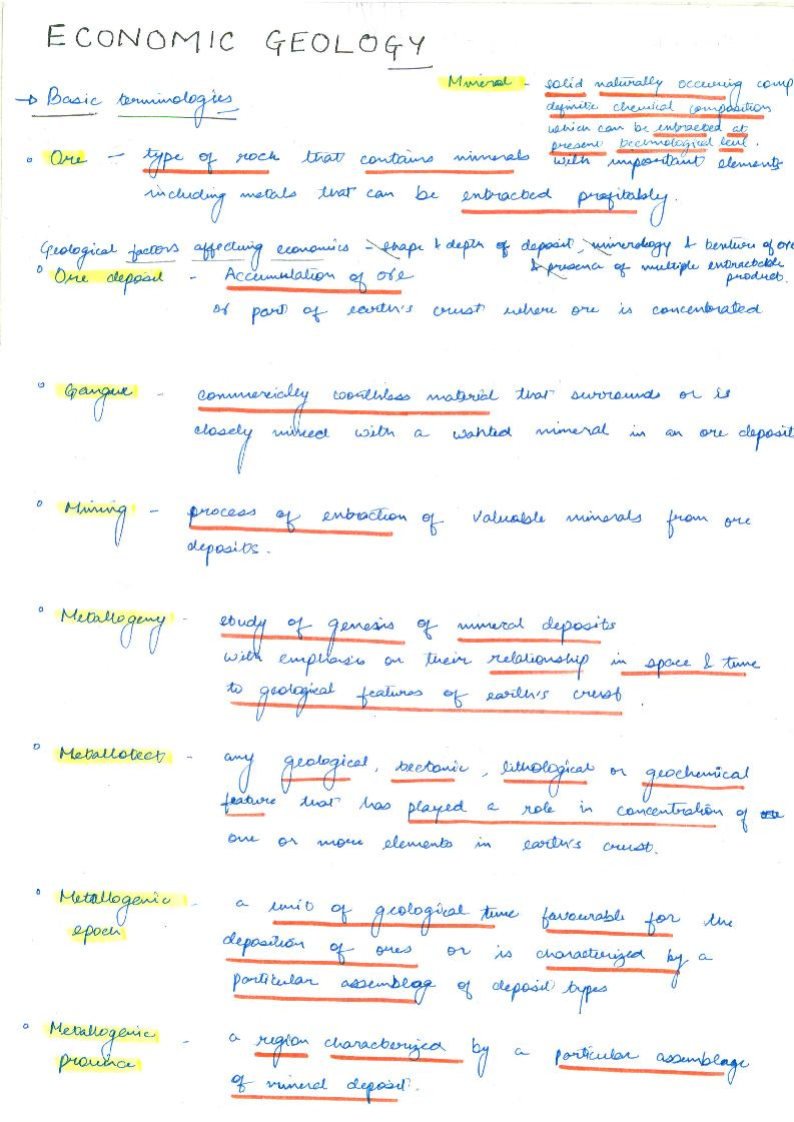 ECONOMIC GEOLOGY
→ Basic terminologies
Mineral - solid naturally occuring comp
definite chemical composition
which can be extracted at
present technological level.
• Ore - type of rock that contains minerals with important elements
including metals that can be extracted profitably.
Geological factors affecting economics - shape & depth of deposit, minerology & texture of ore
& presence of multiple extractable
product.
• Ore deposit - Accumulation of ore
or part of earth's crust where ore is concentrated
• Gangue - commercially worthless material that surrounds or is
closely mixed with a wanted mineral in an ore deposit
• Mining - process of extraction of valuable minerals from ore
deposits.
• Metallogeny - study of genesis of mineral deposits
with emphasis on their relationship in space & time
to geological features of earth's crust
• Metallotect - any geological, tectonic, lithological or geochemical
feature that has played a role in concentration of
one or more elements in earth's crust.
• Metallogenic - a unit of geological time favourable for the
epoch deposition of ores or is characterized by a
particular assemblag of deposit types
• Metallogenic - a region characterized by a particular assemblage
province of mineral deposit.